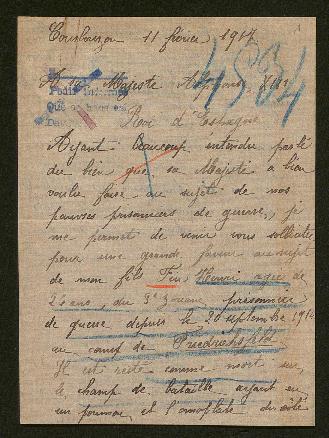 11 février 1917
4504
A sa Majesté Alphonse XIII
Roi d'Espagne
Ayant beaucoup entendu parlé
du bien que sa Majesté a bien
voulu faire au sujet de nos
pauvres prisonniers de guerre, je
me permet de venir vous solliciter
pour une grande faveur au sujet
de mon fils Feu Henri agé de
2 ans, du 3e Zouave prisonnier
de guerre depuis le 20 septembre 1914
au camp de Friedrichsfeld
Il est resté comme mort sur
le champ de bataille ayant eu
un poumon et l'omoplate du côté